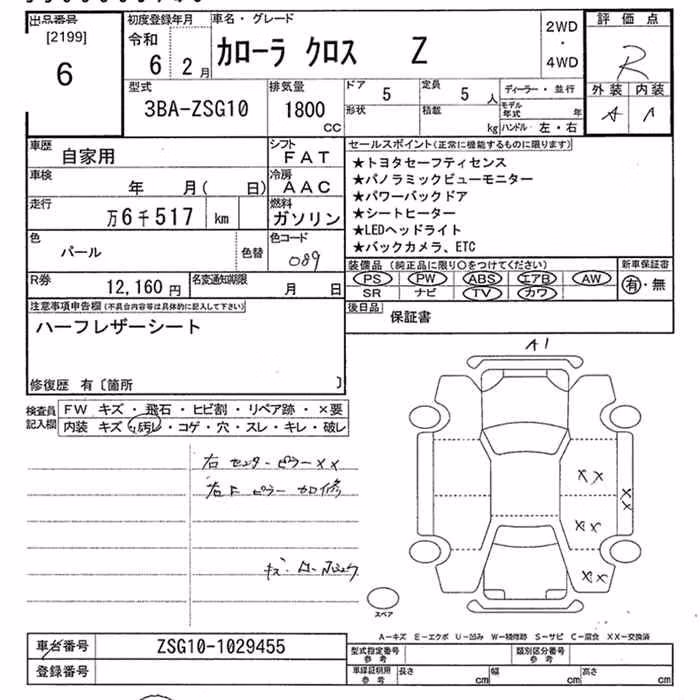 出品番号
[2199]
6
初度登録年月
令和
6 2月
車名・グレード
カローラ クロス Z
2WD
・
4WD
評価点
R
外装 内装
A A
型式
3BA-ZSG10
排気量
1800
CC
ドア
5
定員
5 人
形状
積載
kg
ディーラー・並行
モデル年式 年
ハンドル 左・右
車歴
自家用
シフト
FAT
車検
年 月( 日)
冷房
AAC
走行
万6千517 km
燃料
ガソリン
色
パール
色替
色コード
089
R券
12,160 円
名変通知期限
月 日
セールスポイント(正常に機能するものに限ります)
★トヨタセーフティセンス
★パノラミックビューモニター
★パワーバックドア
★シートヒーター
★LEDヘッドライト
★バックカメラ、ETC
装備品 (純正品に限り○をつけてください)
PS PW ABS エアB AW
SR ナビ TV カワ
新車保証書
有・無
後日品
保証書
注意事項申告欄(不具合内容等は具体的に記入して下さい)
ハーフレザーシート
修復歴 有〔箇所 〕
検査員
記入欄
FW キズ・飛石・ヒビ割・リペア跡・×要
内装 キズ・汚レ・コゲ・穴・スレ・キレ・破レ
右 センターピラー××
右F ピラー 加修
A1
××
××
××
××
スペア
A-キズ E-エクボ U-凹み W-補修跡 S-サビ C-腐食 XX-交換済
車台番号
ZSG10-1029455
登録番号
型式指定番号
参考
類別区分番号
参考
車検証明用
参考
長さ cm
幅 cm
高さ cm